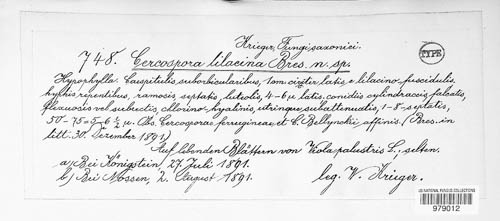 Krieger, Fungi saxonici.
748. Cercospora lilacina Bres. n. sp.
TYPE
Hypophylla. Caespitulis suborbicularibus, 1 cm. circiter latis e lilacino fuscidulis,
hyphis repentibus, ramosis, septatis, luteolis, 4-6 μ latis, conidiis cylindraceis falcatis,
flexuosis vel subrectis chlorino-hyalinis, utrinque subattenuatis, 1-8-septatis,
50-75=5-6½ μ. Obs. Cercosporae ferrugineae et C. Bellynckii affinis. (Bres. in
litt. 30. Dezember 1891.)
Auf lebenden Blättern von Viola palustris L., selten.
a) Bei Königstein, 27. Juli 1891.
b) Bei Nossen, 2. August 1891.
leg. W. Krieger.
US NATIONAL FUNGUS COLLECTIONS
979012